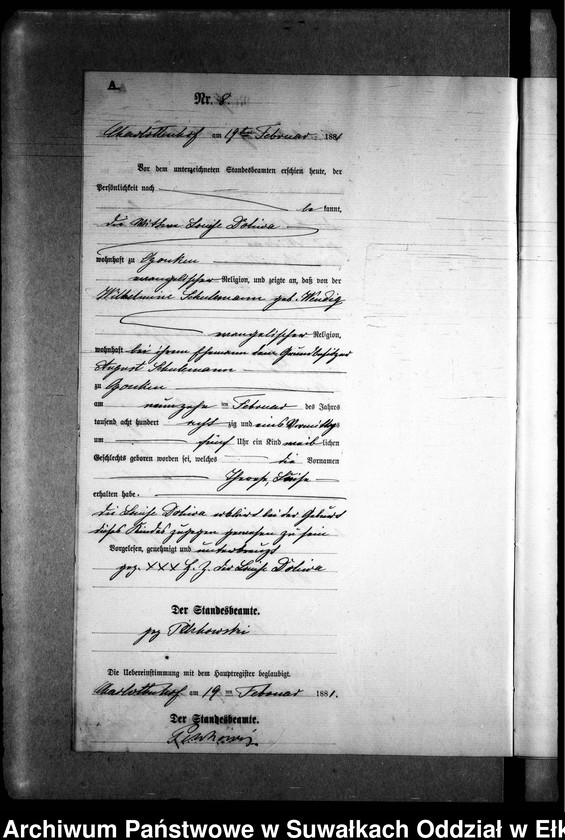 A.
Nr. 8.
Charlottenhof am 19ten Februar 1881
Vor dem unterzeichneten Standesbeamten erschien heute, der
Persönlichkeit nach
be kannt,
die Wittwe Louise Doliwa
wohnhaft zu Czonken
evangelischer Religion, und zeigte an, daß von der
Wilhelmine Schulemann geb.
evangelischer Religion,
wohnhaft bei ihrem Ehemann dem Grundbesitzer
August Schulemann
zu Czonken
am neunzehn ten Februar des Jahres
tausend acht hundert acht zig und eins Vormittags
um fünf Uhr ein Kind weib lichen
Geschlechts geboren worden sei, welches die Vornamen
Louise
erhalten habe.
die Louise Doliwa erklärt bei der Geburt
dieses Kindes zugegen gewesen zu sein
Vorgelesen, genehmigt und unterkreuzt
gez. XXX H. Z. der Louise Doliwa
Der Standesbeamte.
gez
Die Uebereinstimmung mit dem Hauptregister beglaubigt.
Charlottenhof am 19 ten Februar 1881.
Der Standesbeamte.
Archiwum Państwowe w Suwałkach Oddział w Ełk